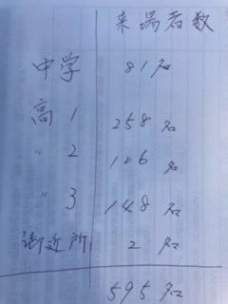 来場者数
中学 81名
高1 258名
〃2 106名
〃3 148名
御近所 2名
595名